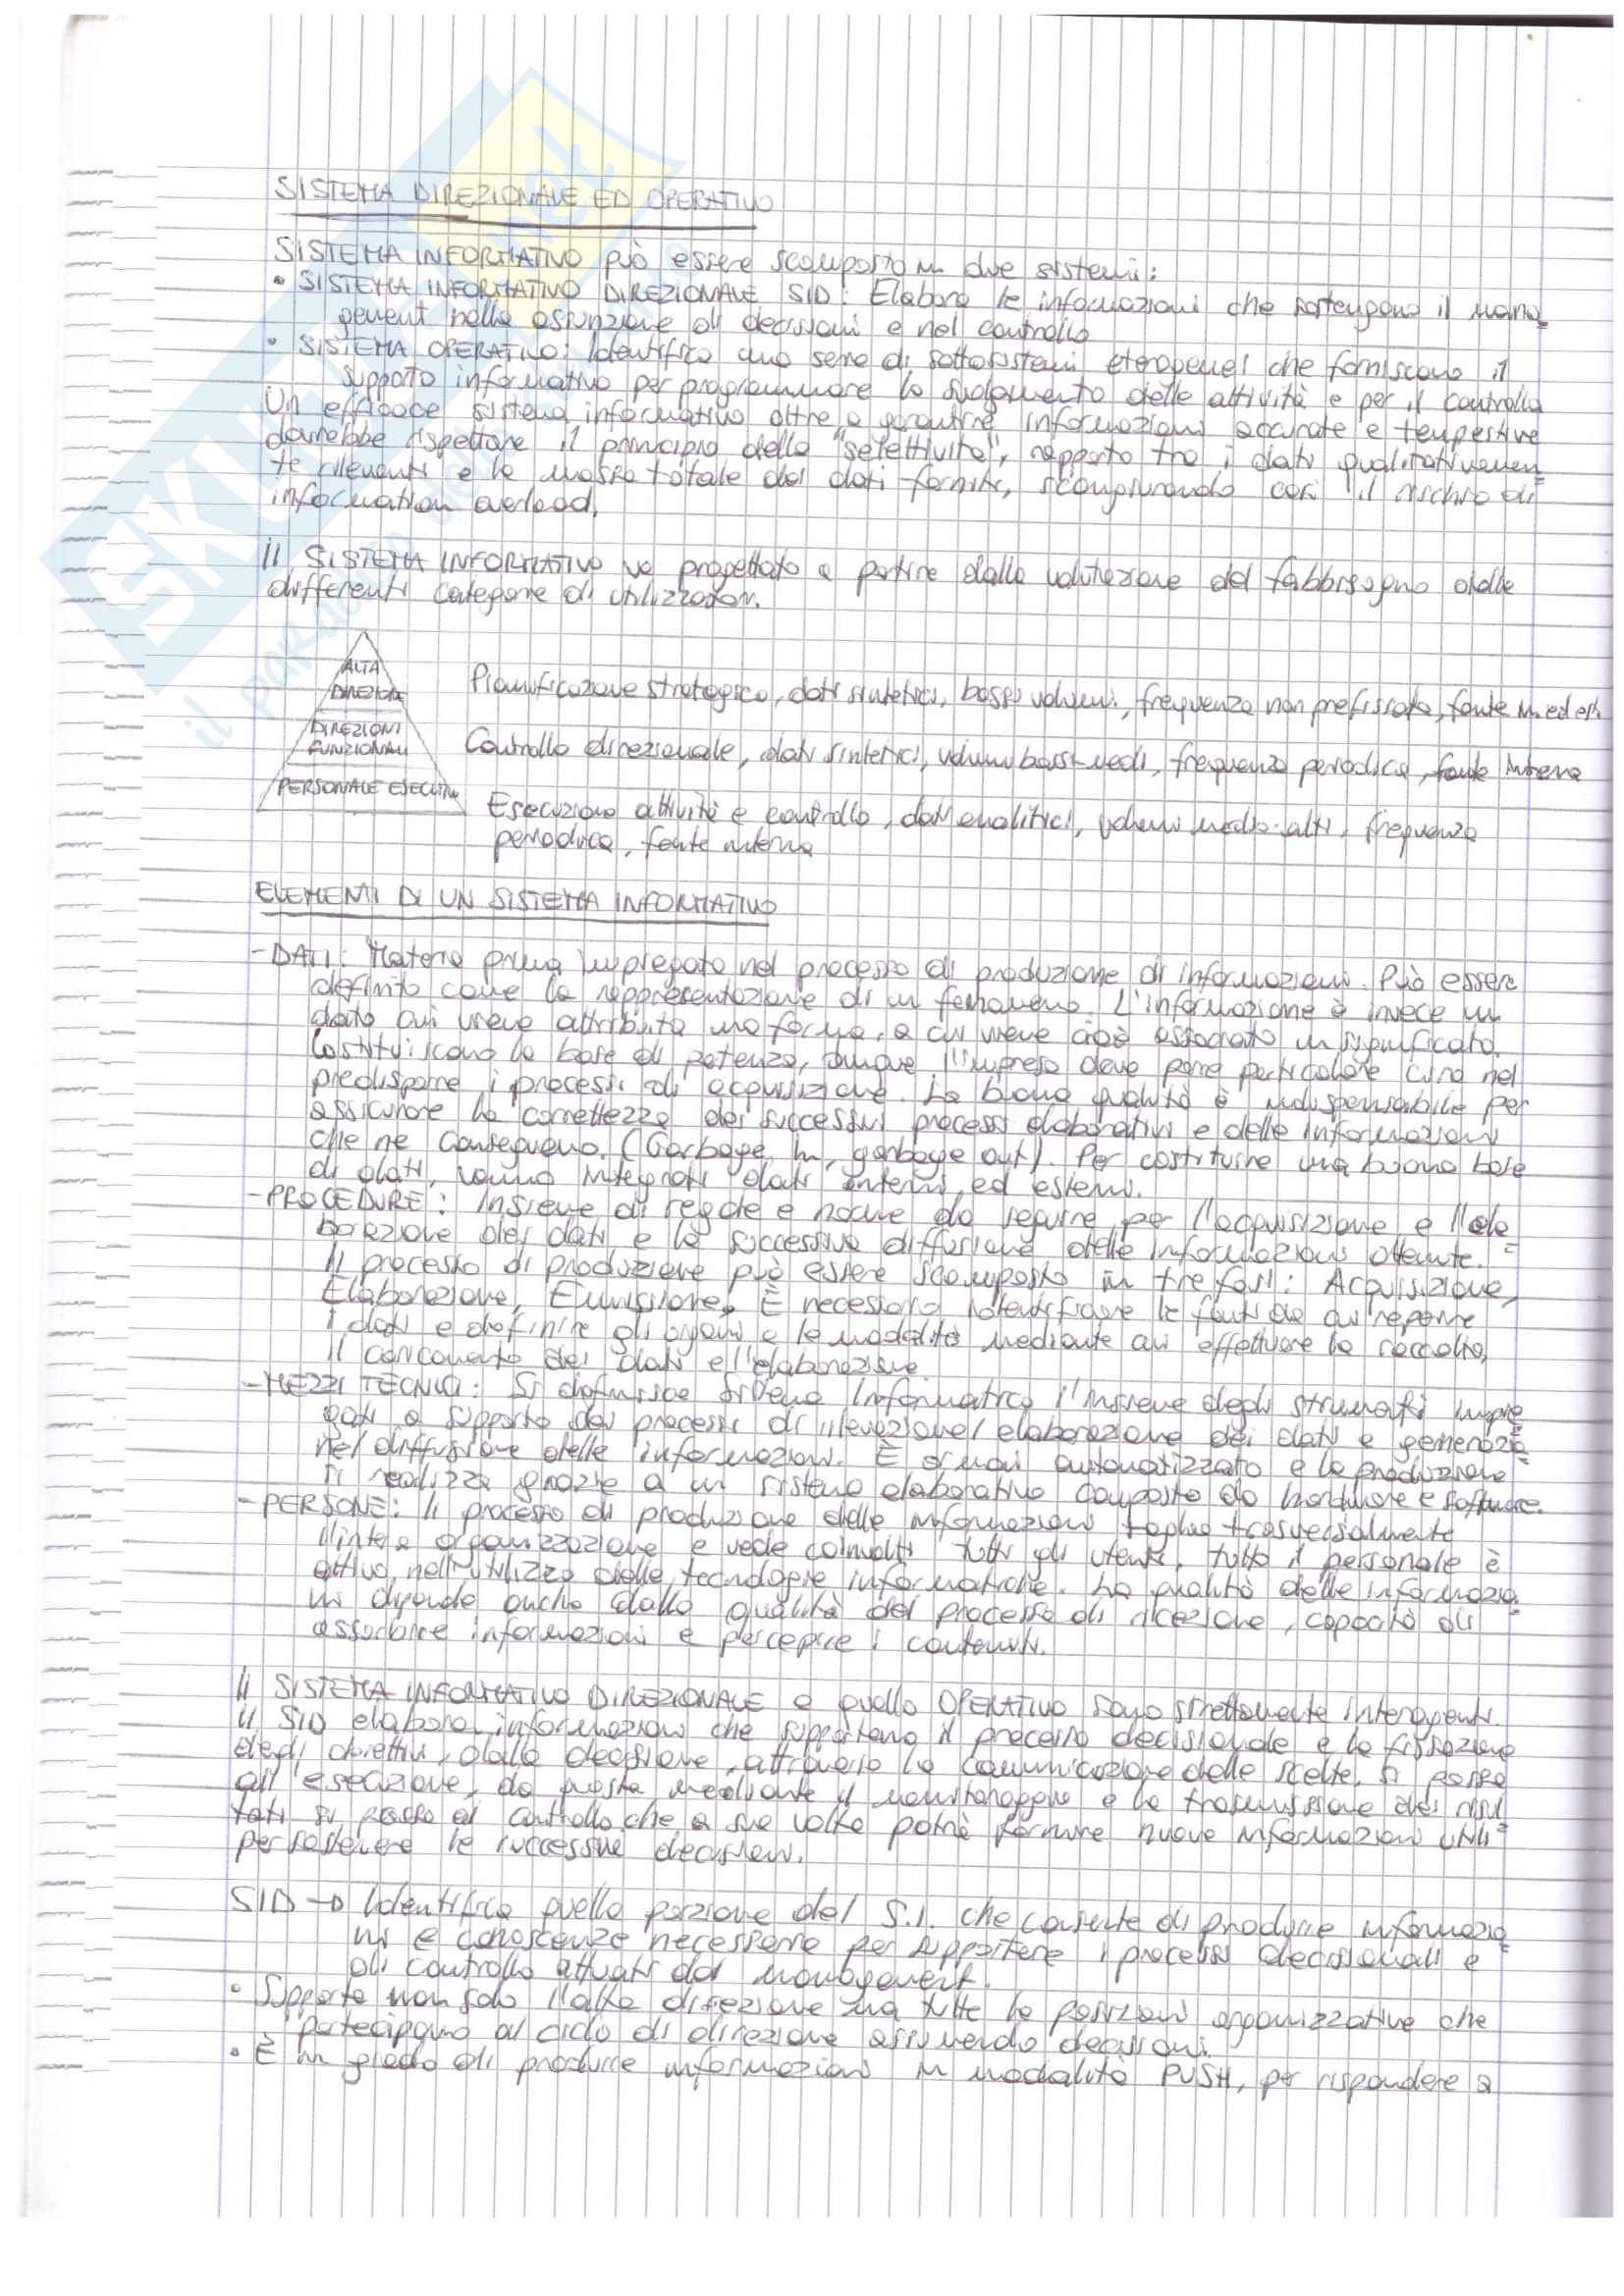 SISTEMA DIREZIONALE ED OPERATIVO
SISTEMA INFORMATIVO può essere scomposto in due sistemi:
• SISTEMA INFORMATIVO DIREZIONALE SID: Elabora le informazioni che sostengono il mana=
gement nella assunzione di decisioni e nel controllo
• SISTEMA OPERATIVO: Identifica una serie di sottosistemi eterogenei che forniscono il
supporto informativo per programmare lo svolgimento delle attività e per il controllo
Un efficace sistema informativo oltre a garantire informazioni accurate e tempestive
dovrebbe rispettare il principio della "selettività", rapporto tra i dati qualitativamen=
te rilevanti e la massa totale dei dati forniti, scongiurando così il rischio di
information overload.
Il SISTEMA INFORMATIVO va progettato a partire dalla valutazione del fabbisogno delle
differenti categorie di utilizzatori.
ALTA
DIREZIONE
Pianificazione strategica, dati sintetici, bassi volumi, frequenza non prefissata, fonte in. ed est.
DIREZIONI
FUNZIONALI
Controllo direzionale, dati sintetici, volumi bassi-medi, frequenza periodica, fonte interna
PERSONALE ESECUTIVO
Esecuzione attività e controllo, dati analitici, volumi medio-alti, frequenza
periodica, fonte interna
ELEMENTI DI UN SISTEMA INFORMATIVO
- DATI: Materia prima impiegata nel processo di produzione di informazioni. Può essere
definito come la rappresentazione di un fenomeno. L'informazione è invece un
dato cui viene attribuita una forma, a cui viene cioè associato un significato.
Costituiscono la base di partenza, dunque l'impresa deve porre particolare cura nel
predisporre i processi di acquisizione. La buona qualità è indispensabile per
assicurare la correttezza dei successivi processi elaborativi e delle informazioni
che ne conseguono. (Garbage in, garbage out). Per costituire una buona base
di dati, vanno integrati dati interni ed esterni.
- PROCEDURE: Insieme di regole e norme da seguire per l'acquisizione e l'ela=
borazione dei dati e la successiva diffusione delle informazioni ottenute.
Il processo di produzione può essere scomposto in tre fasi: Acquisizione,
Elaborazione, Emissione. È necessario identificare le fonti da cui reperire
i dati e definire gli organi e le modalità mediante cui effettuare la raccolta,
il caricamento dei dati e l'elaborazione
- MEZZI TECNICI: Si definisce sistema informatico l'insieme degli strumenti impie
gati a supporto dei processi di rilevazione/elaborazione dei dati e generazio=
ne/diffusione delle informazioni. È ormai automatizzato e la produzione
si realizza grazie a un sistema elaborativo composto da hardware e software.
- PERSONE: Il processo di produzione delle informazioni taglia trasversalmente
l'intera organizzazione e vede coinvolti tutti gli utenti, tutto il personale è
attivo nell'utilizzo delle tecnologie informatiche. La qualità delle informazio=
ni dipende anche dalla qualità del processo di ricezione, capacità di
assorbire informazioni e percepire i contenuti.
Il SISTEMA INFORMATIVO DIREZIONALE e quello OPERATIVO sono strettamente interagenti.
Il SID elabora informazioni che supportano il processo decisionale e la fissazione
degli obiettivi, dalla decisione, attraverso la comunicazione delle scelte, si passa
all'esecuzione, da questa mediante il monitoraggio e la trasmissione dei risul
tati si passa al controllo che a sua volta potrà fornire nuove informazioni utili=
per sostenere le successive decisioni.
SID → Identifica quella porzione del S.I. che consente di produrre informazio=
ni e conoscenze necessarie per supportare i processi decisionali e
di controllo attuati dal management.
• Supporta non solo l'alta direzione ma tutte le posizioni organizzative che
partecipano al ciclo di direzione assumendo decisioni.
• È in grado di produrre informazioni in modalità PUSH, per rispondere a